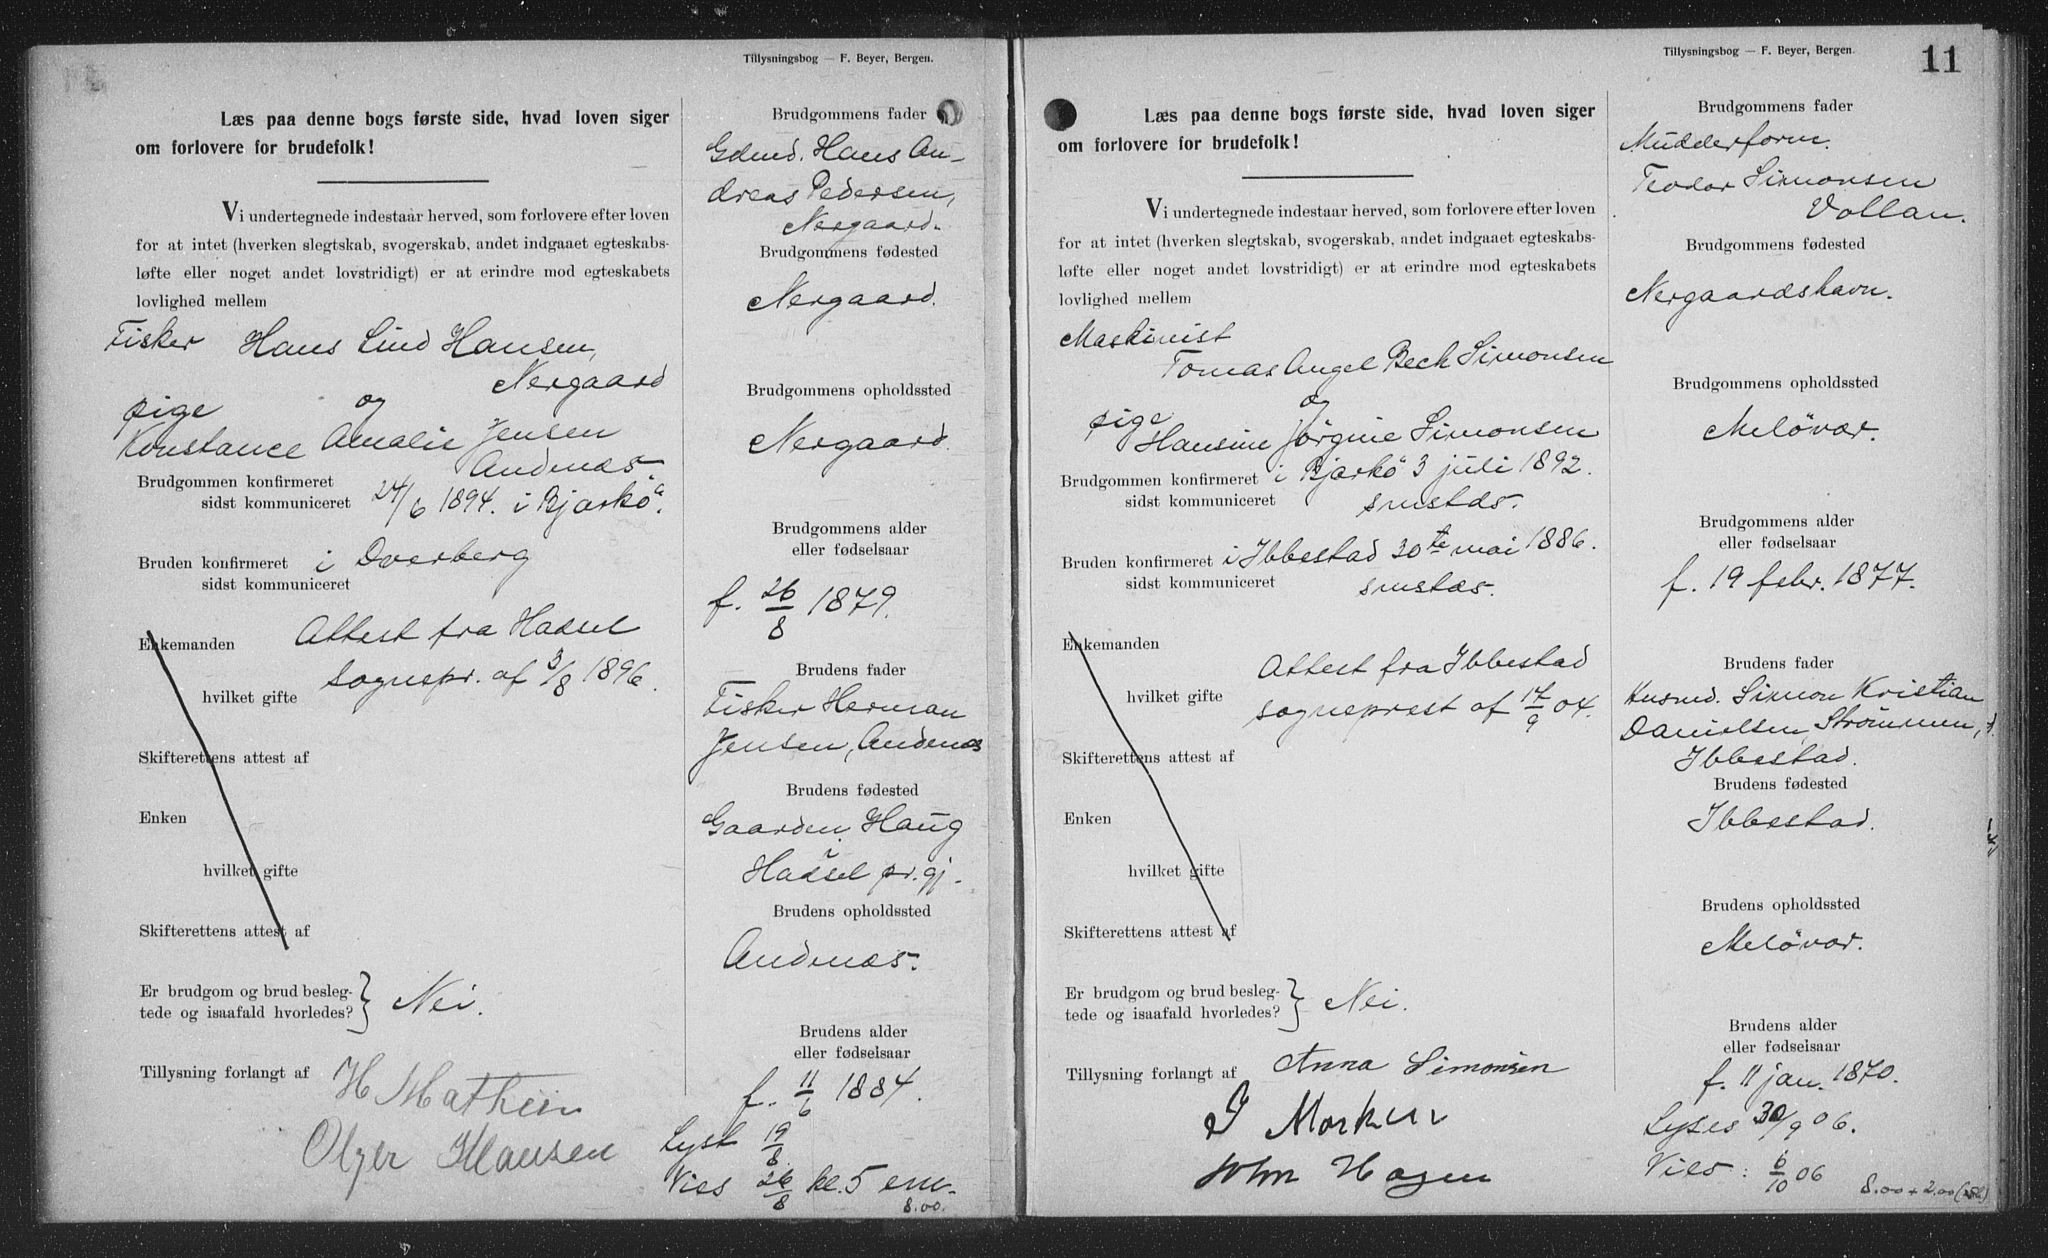 Tillysningbog — F. Beyer, Bergen.
Læs paa denne bogs første side, hvad loven siger
om forlovere for brudefolk!
Vi undertegnede indestaar herved, som forlovere efter loven
for at intet (hverken slegtskab, svogerskab, andet indgaaet egteskabs-
løfte eller noget andet lovstridigt) er at erindre mod egteskabets
lovlighed mellem
Fisker Hans Lind Hansen,
Nergaard
pige og
Konstance Amalie Jensen
Andenæs
Brudgommen konfirmeret
sidst kommuniceret 24/6 1894. i Bjarkö.
Bruden konfirmeret i Dverberg
sidst kommuniceret
Enkemanden Attest fra Hadsel
sognepr. af 3/8 1896.
hvilket gifte
Skifterettens attest af
Enken
hvilket gifte
Skifterettens attest af
Er brudgom og brud besleg-
tede og isaafald hvorledes? } Nei.
Tillysning forlangt af H Mathein
Olger Hansen
Brudgommens fader
Gdmd. Hans An-
dreas Pedersen,
Nergaard.
Brudgommens fødested
Nergaard.
Brudgommens opholdssted
Nergaard.
Brudgommens alder
eller fødselsaar
f. 26/8 1879.
Brudens fader
Fisker Herman
Jensen, Andenæs
Brudens fødested
Gaarden Haug
Hadsel pr.gj.
Brudens opholdssted
Andenæs.
Brudens alder
eller fødselsaar
f. 11/6 1884.
Lyst 19/8
Vies 26/8 kl. 5 em.
8.00.
Tillysningsbog — F. Beyer, Bergen.
11
Læs paa denne bogs første side, hvad loven siger
om forlovere for brudefolk!
Vi undertegnede indestaar herved, som forlovere efter loven
for at intet (hverken slegtskab, svogerskab, andet indgaaet egteskabs-
løfte eller noget andet lovstridigt) er at erindre mod egteskabets
lovlighed mellem
Maskinist
Tomas Angel Bech Simonsen
og
pige Hansine Jörgine Simonsen
Brudgommen konfirmeret i Bjarkö 3 juli 1892.
sidst kommuniceret smstds.
Bruden konfirmeret i Ibbestad 30te mai 1886.
sidst kommuniceret smstds.
Enkemanden
Attest fra Ibbestad
hvilket gifte
sogneprest af 17/9 04.
Skifterettens attest af
Enken
hvilket gifte
Skifterettens attest af
Er brudgom og brud besleg-
tede og isaafald hvorledes? } Nei.
Tillysning forlangt af Anna Simonsen
J Morken
John Hagen
Brudgommens fader
Mudderform.
Teodor Simonsen
Vollan.
Brudgommens fødested
Nergaardshavn.
Brudgommens opholdssted
Melövær.
Brudgommens alder
eller fødselsaar
f. 19 febr. 1877.
Brudens fader
Husmd. Simon Kristian
Danielsen, Strömmen,
Ibbestad.
Brudens fødested
Ibbestad.
Brudens opholdssted
Melövær.
Brudens alder
eller fødselsaar
f. 11 jan. 1870.
Lyses 30/9 06.
Vies: 6/10 06
8.00 + 2.00